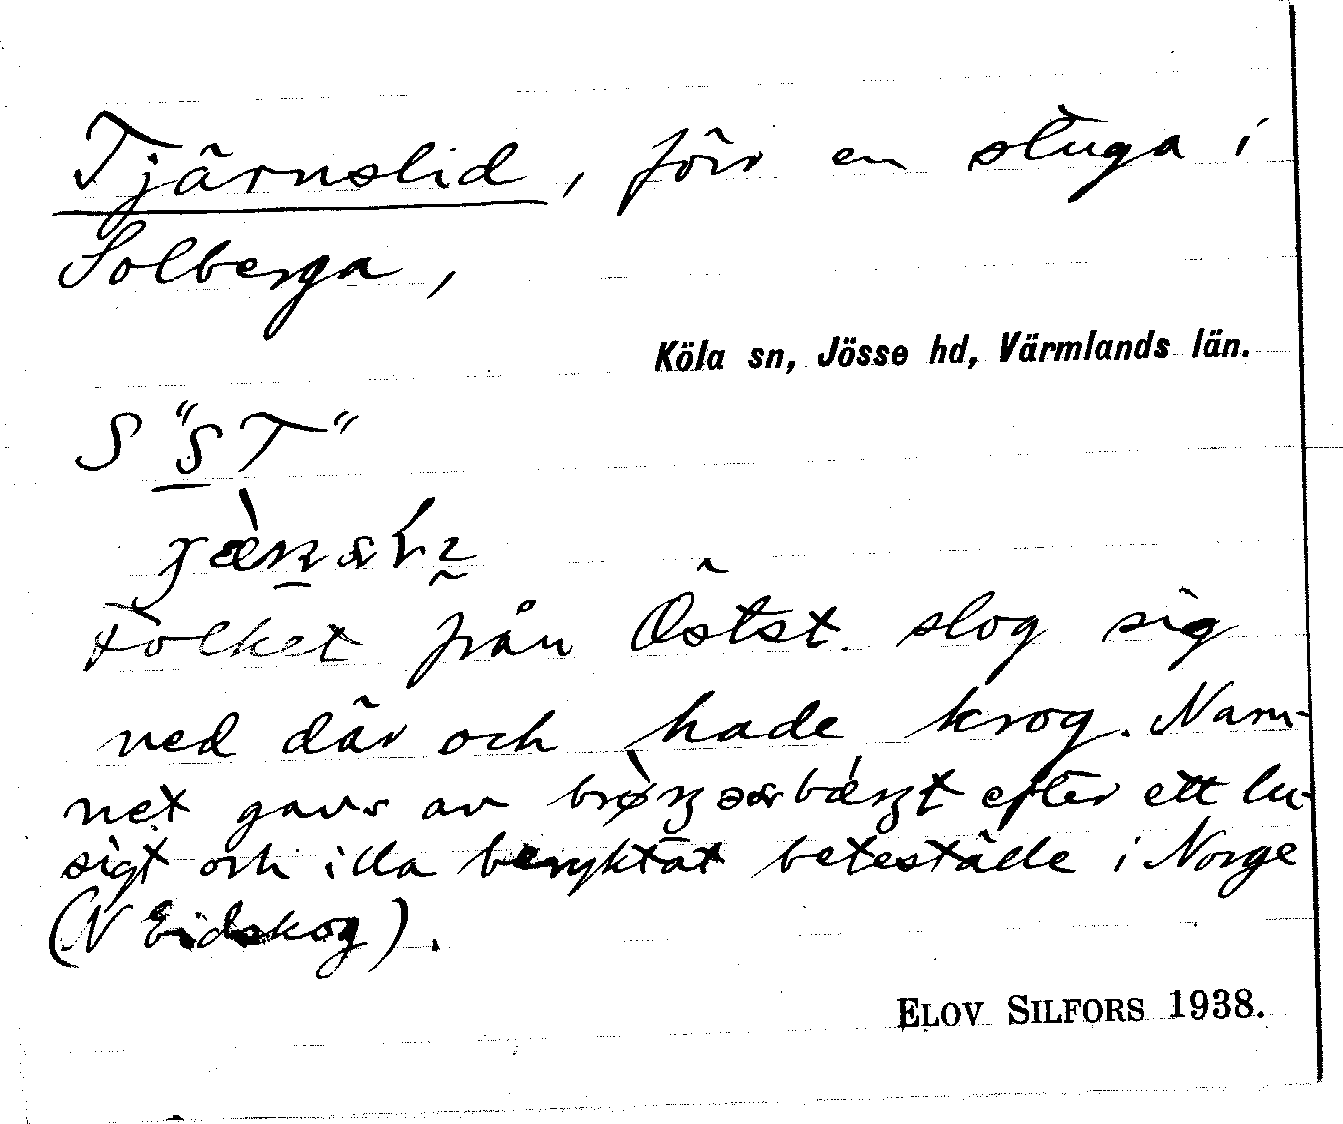 Tjärnslid, förr en stuga i
Solberga,
Köla sn, Jösse hd, Värmlands län.
S "S T"
Folket från Östst. slog sig
ned där och hade krog. Nam-
net gavs av efter ett lu-
sigt och illa beryktat beteställe i Norge
(N Eidskog).
ELOV SILFORS 1938.